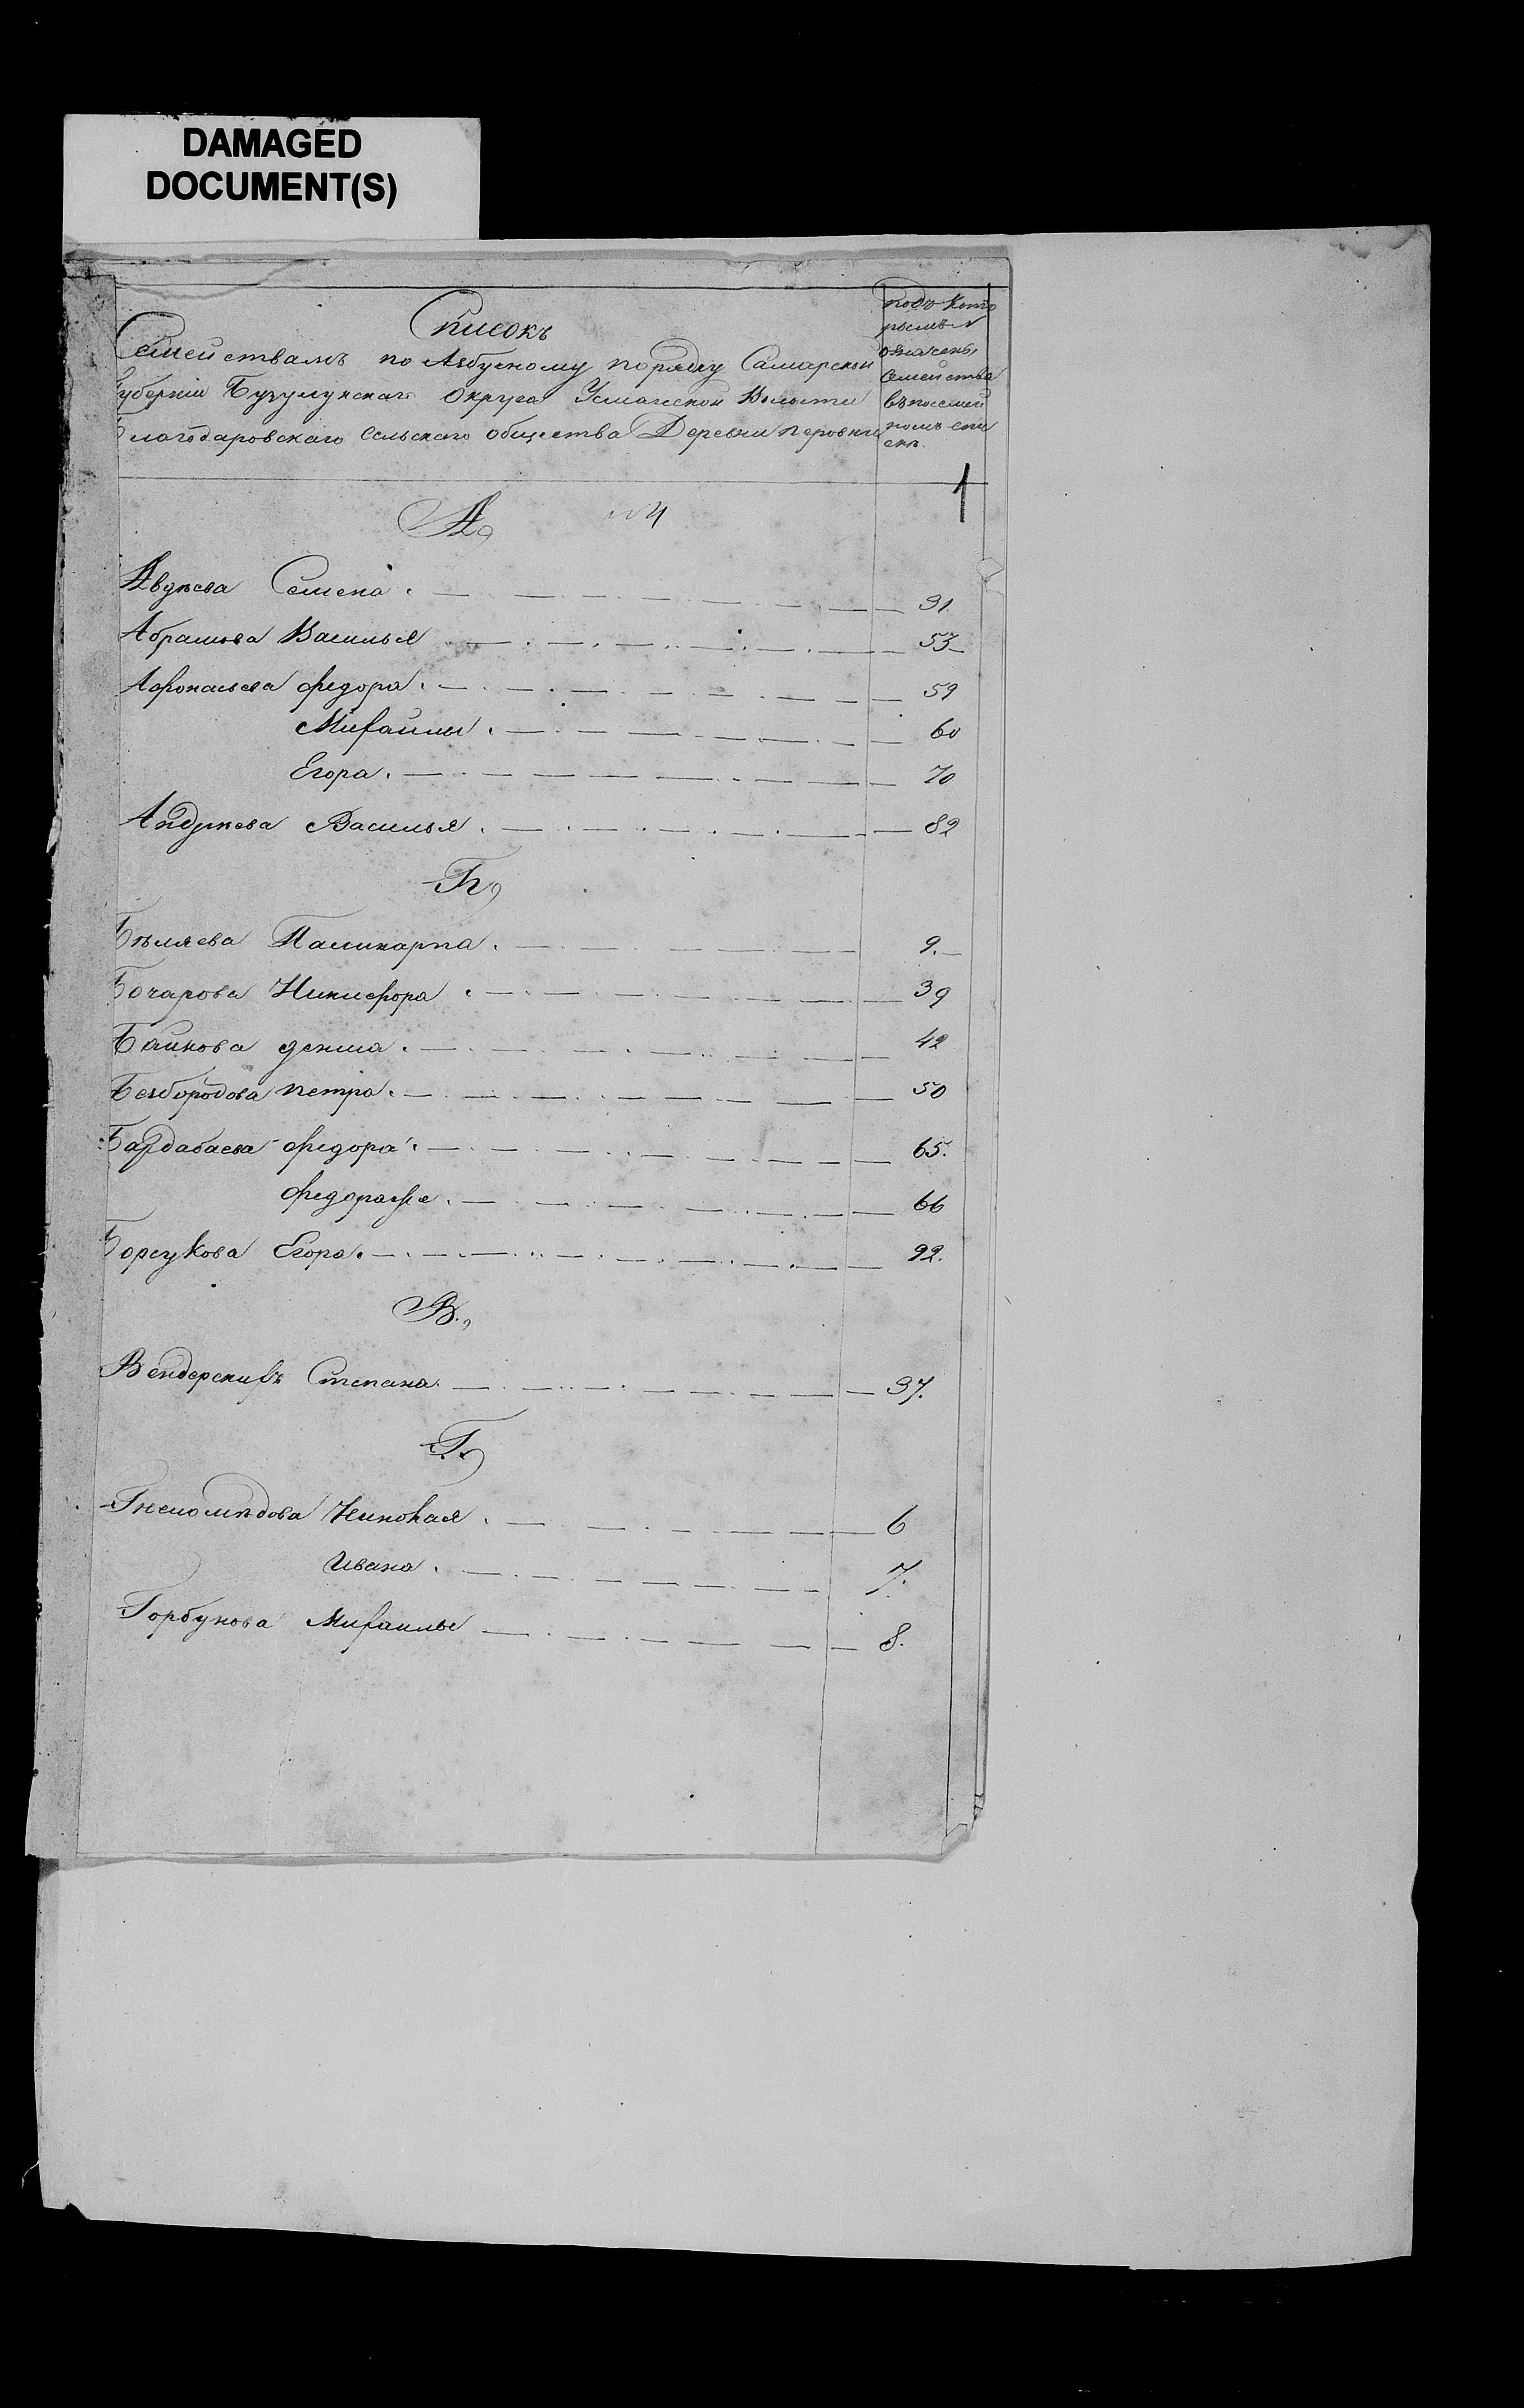 DAMAGED
DOCUMENT(S)
Списокъ
Семействамъ по Азбучному порядку Самарской
Губерніи Бузулукскаго Округа Усманской Волости
Благодаровскаго Сельскаго общества Деревни Перовки
подъ Кото
рымъ №
означены
Семейства
въ посемей
номъ спи
скѣ.
1
А, №4
Авдѣева Семена 31.
Абрамова Василья 53
Афонасьева Федора 59
Михайлы 60
Егора 70
Андреева Василья 82
Б,
Бѣляева Паликарпа 9.
Бочарова Никифора 39
Байкова 42
Безбородова Петра 50
Бардабаева Федора 65.
Федора же 66
Борсукова Егора 92.
В.,
Вендерскихъ Степана 37.
Г.,
Гнеломѣдова Николая 6
Ивана 7.
Горбунова Михаилы 8.